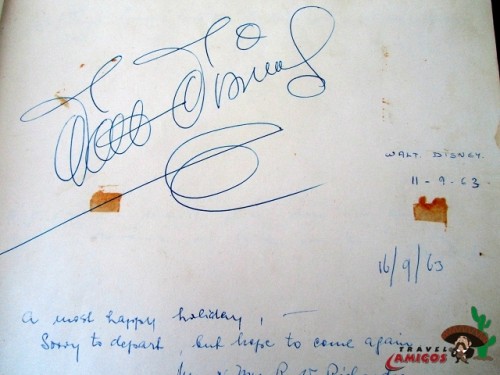 Walt Disney
WALT. DISNEY.
11-9-63
16/9/63
A most happy holiday, —
Sorry to depart, but hope to come again
Mr & Mrs R. V.
TRAVEL
AMIGOS